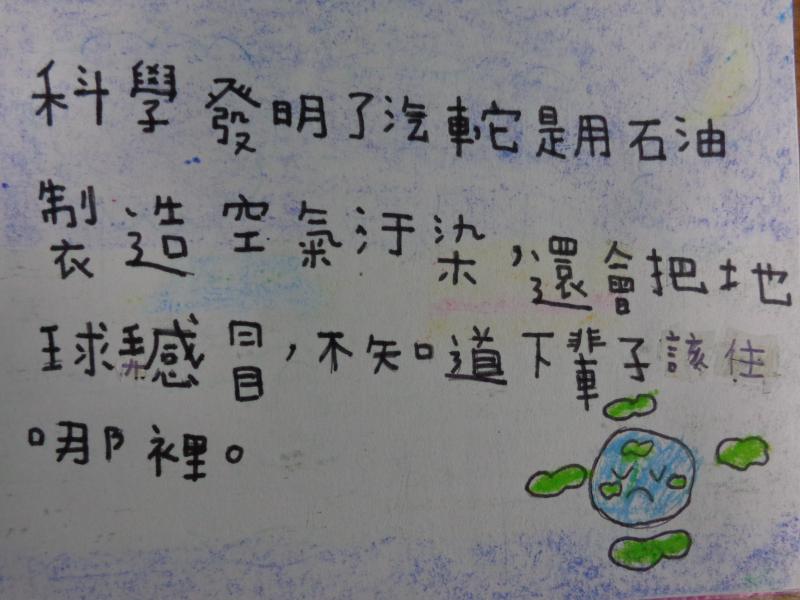 科學發明了汽車它是用石油
製造空氣汙染，還會把地
球弄感冒，不知道下輩子該住
哪裡。